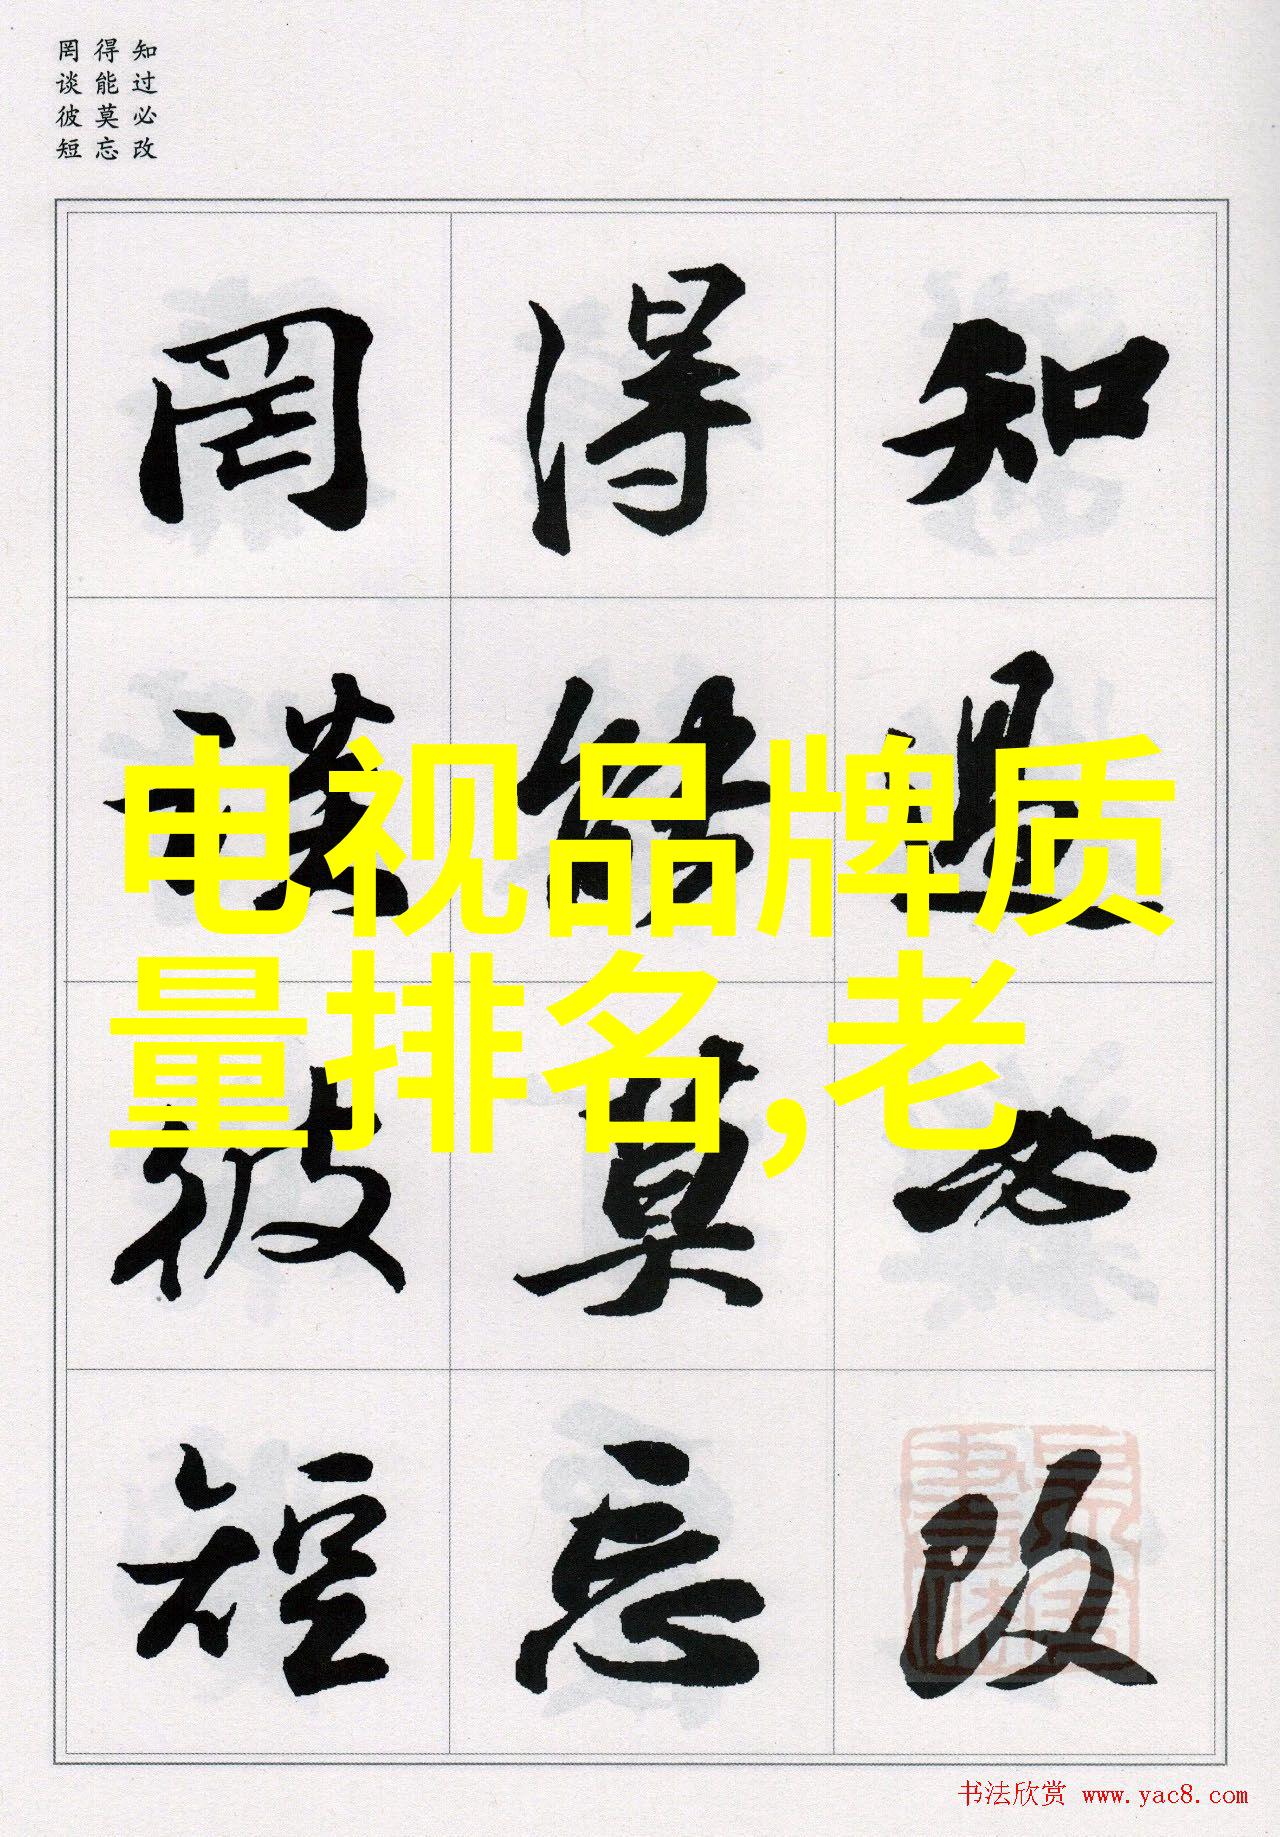 知过必改
得能莫忘
罔谈彼短
知過必改
得能莫忘
罔談彼短
电视品牌质
量排名,老
书法欣赏 www.yac8.com